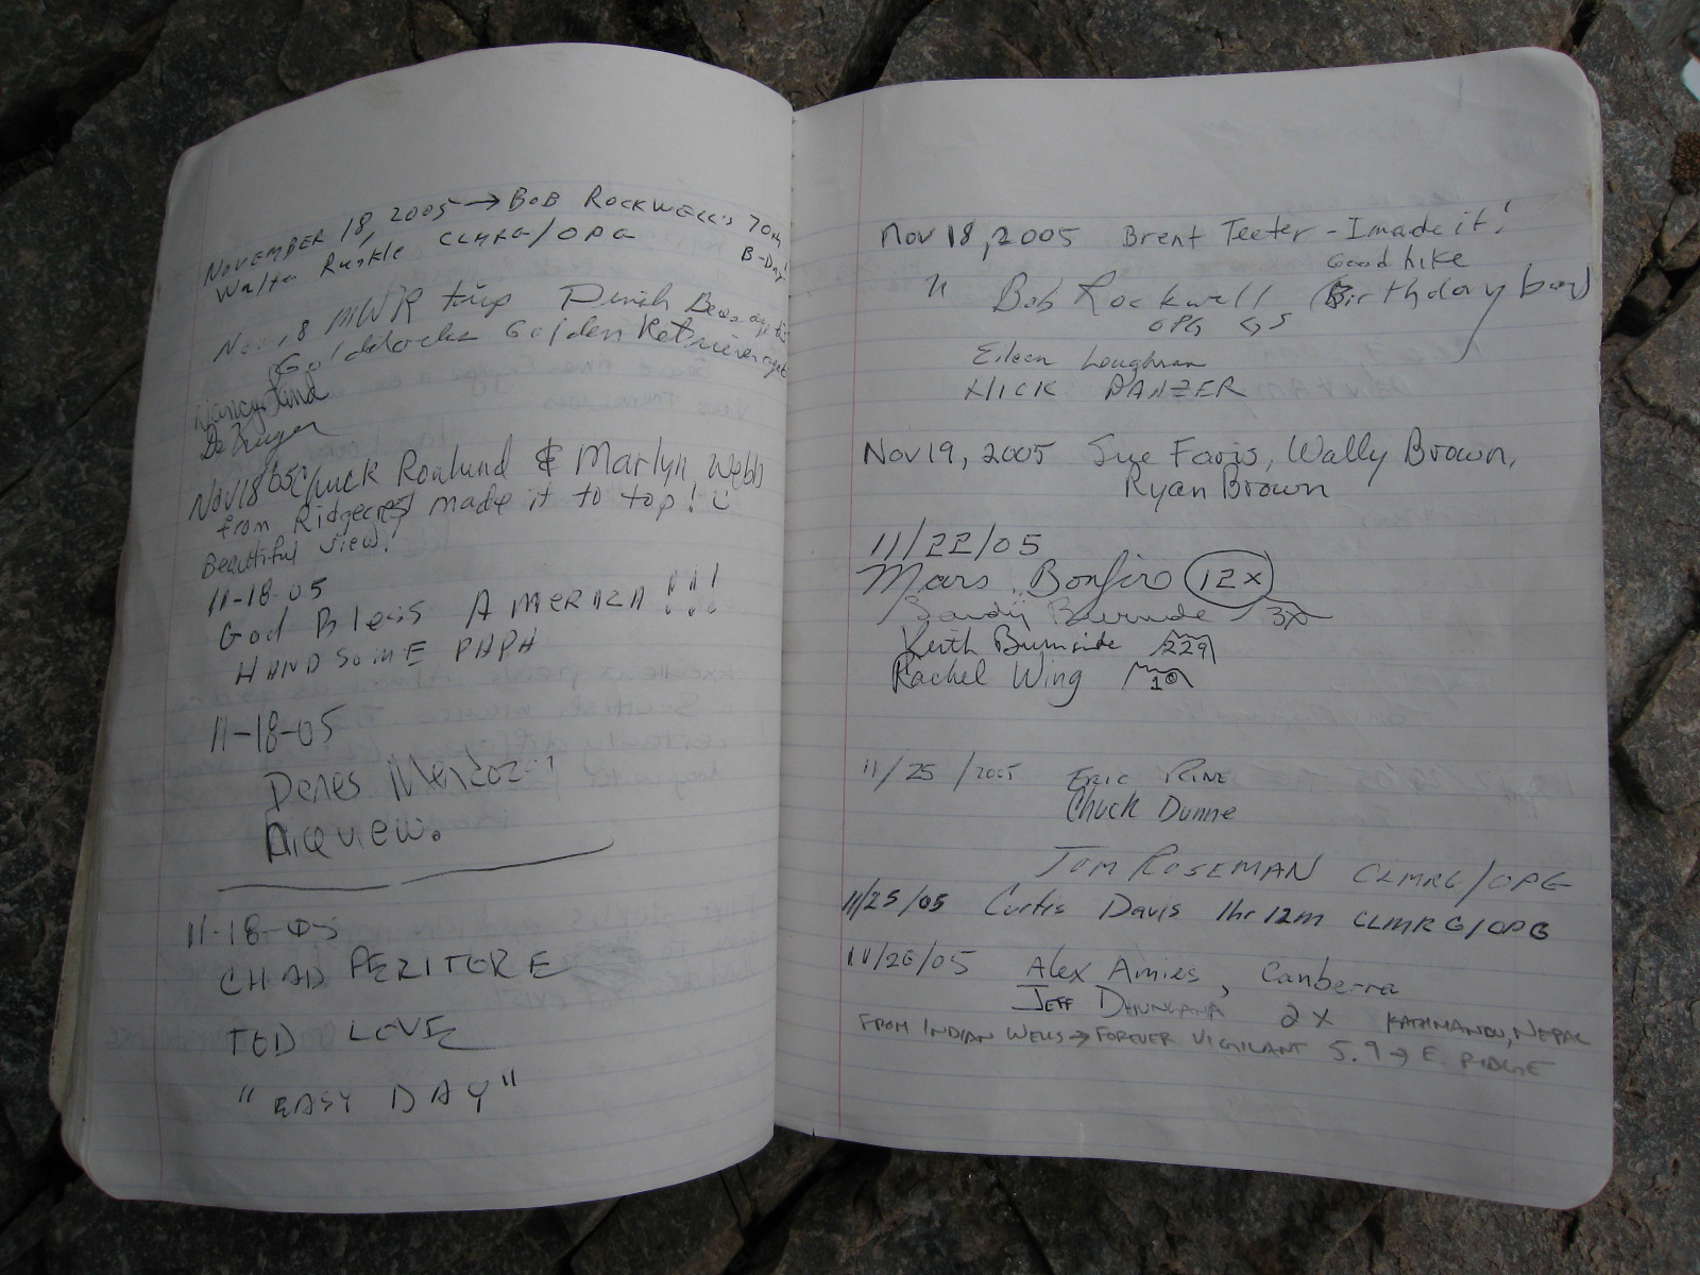 NOVEMBER 18, 2005 → BOB ROCKWELL'S 70th
B-Day!
Walter CLMRG/OPG
Nov 18 MWR trip Bews age
Goldilocks Golden Retriever age
Nancy and
Nov 18 '05 Chuck Roulund & Marlyn Webb
from Ridgecrest made it to top!
Beautiful view!
11-18-05
God Bless AMERICA !!!
HANDSOME PAPA
11-18-05
Denes Mendoz
Nice view.
11-18-05
CHAD PERITORE
TED LOVE
"EASY DAY"
Nov 18, 2005 Brent Teeter - I made it!
Good hike
" Bob Rockwell (Birthday boy)
OPG GS
Eileen Loughran
NICK DANZER
Nov 19, 2005 Sue Faris, Wally Brown,
Ryan Brown
11/22/05
Mars Bonfire 12x
Sandy Burnside 3x
Keith Burnside 229
Rachel Wing 10
11/25/2005 ERIC RINE
Chuck Dunne
TOM ROSEMAN CLMRG/OPG
11/25/05 Curtis Davis 1hr 12m CLMRG/OPG
11/26/05 Alex Amies, Canberra
JEFF DHUNGANA 2X KATHMANDU, NEPAL
FROM INDIAN WELLS → FOREVER VIGILANT 5.9 → E. RIDGE